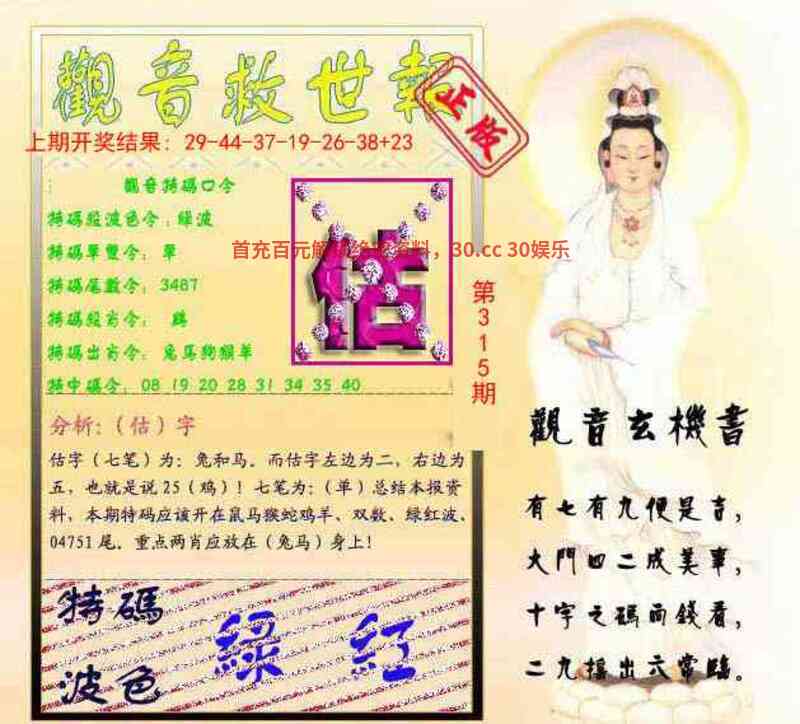 觀音救世報
正版
上期开奖结果：29-44-37-19-26-38+23
觀音特碼口令
特碼波色令：綠波
特碼單雙令：單
特碼尾數令：3487
特碼出肖令：兔马狗猴羊
特中碼令：08 19 20 28 31 34 35 40
估
首充百元解
资料，30.cc 30娱乐
第315期
分析：（估）字
估字（七笔）为：兔和马。而估字左边为二，右边为
五，也就是说25（鸡）！七笔为：（单）总结本报资
料，本期特码应该开在鼠马猴蛇鸡羊、双数、绿红波、
04751尾。重点两肖应放在（兔马）身上！
特碼
波色
綠 紅
觀音玄機書
有七有九便是吉，
大門四二成美事，
十字之碼而錢看，
二九擺出六常臨。